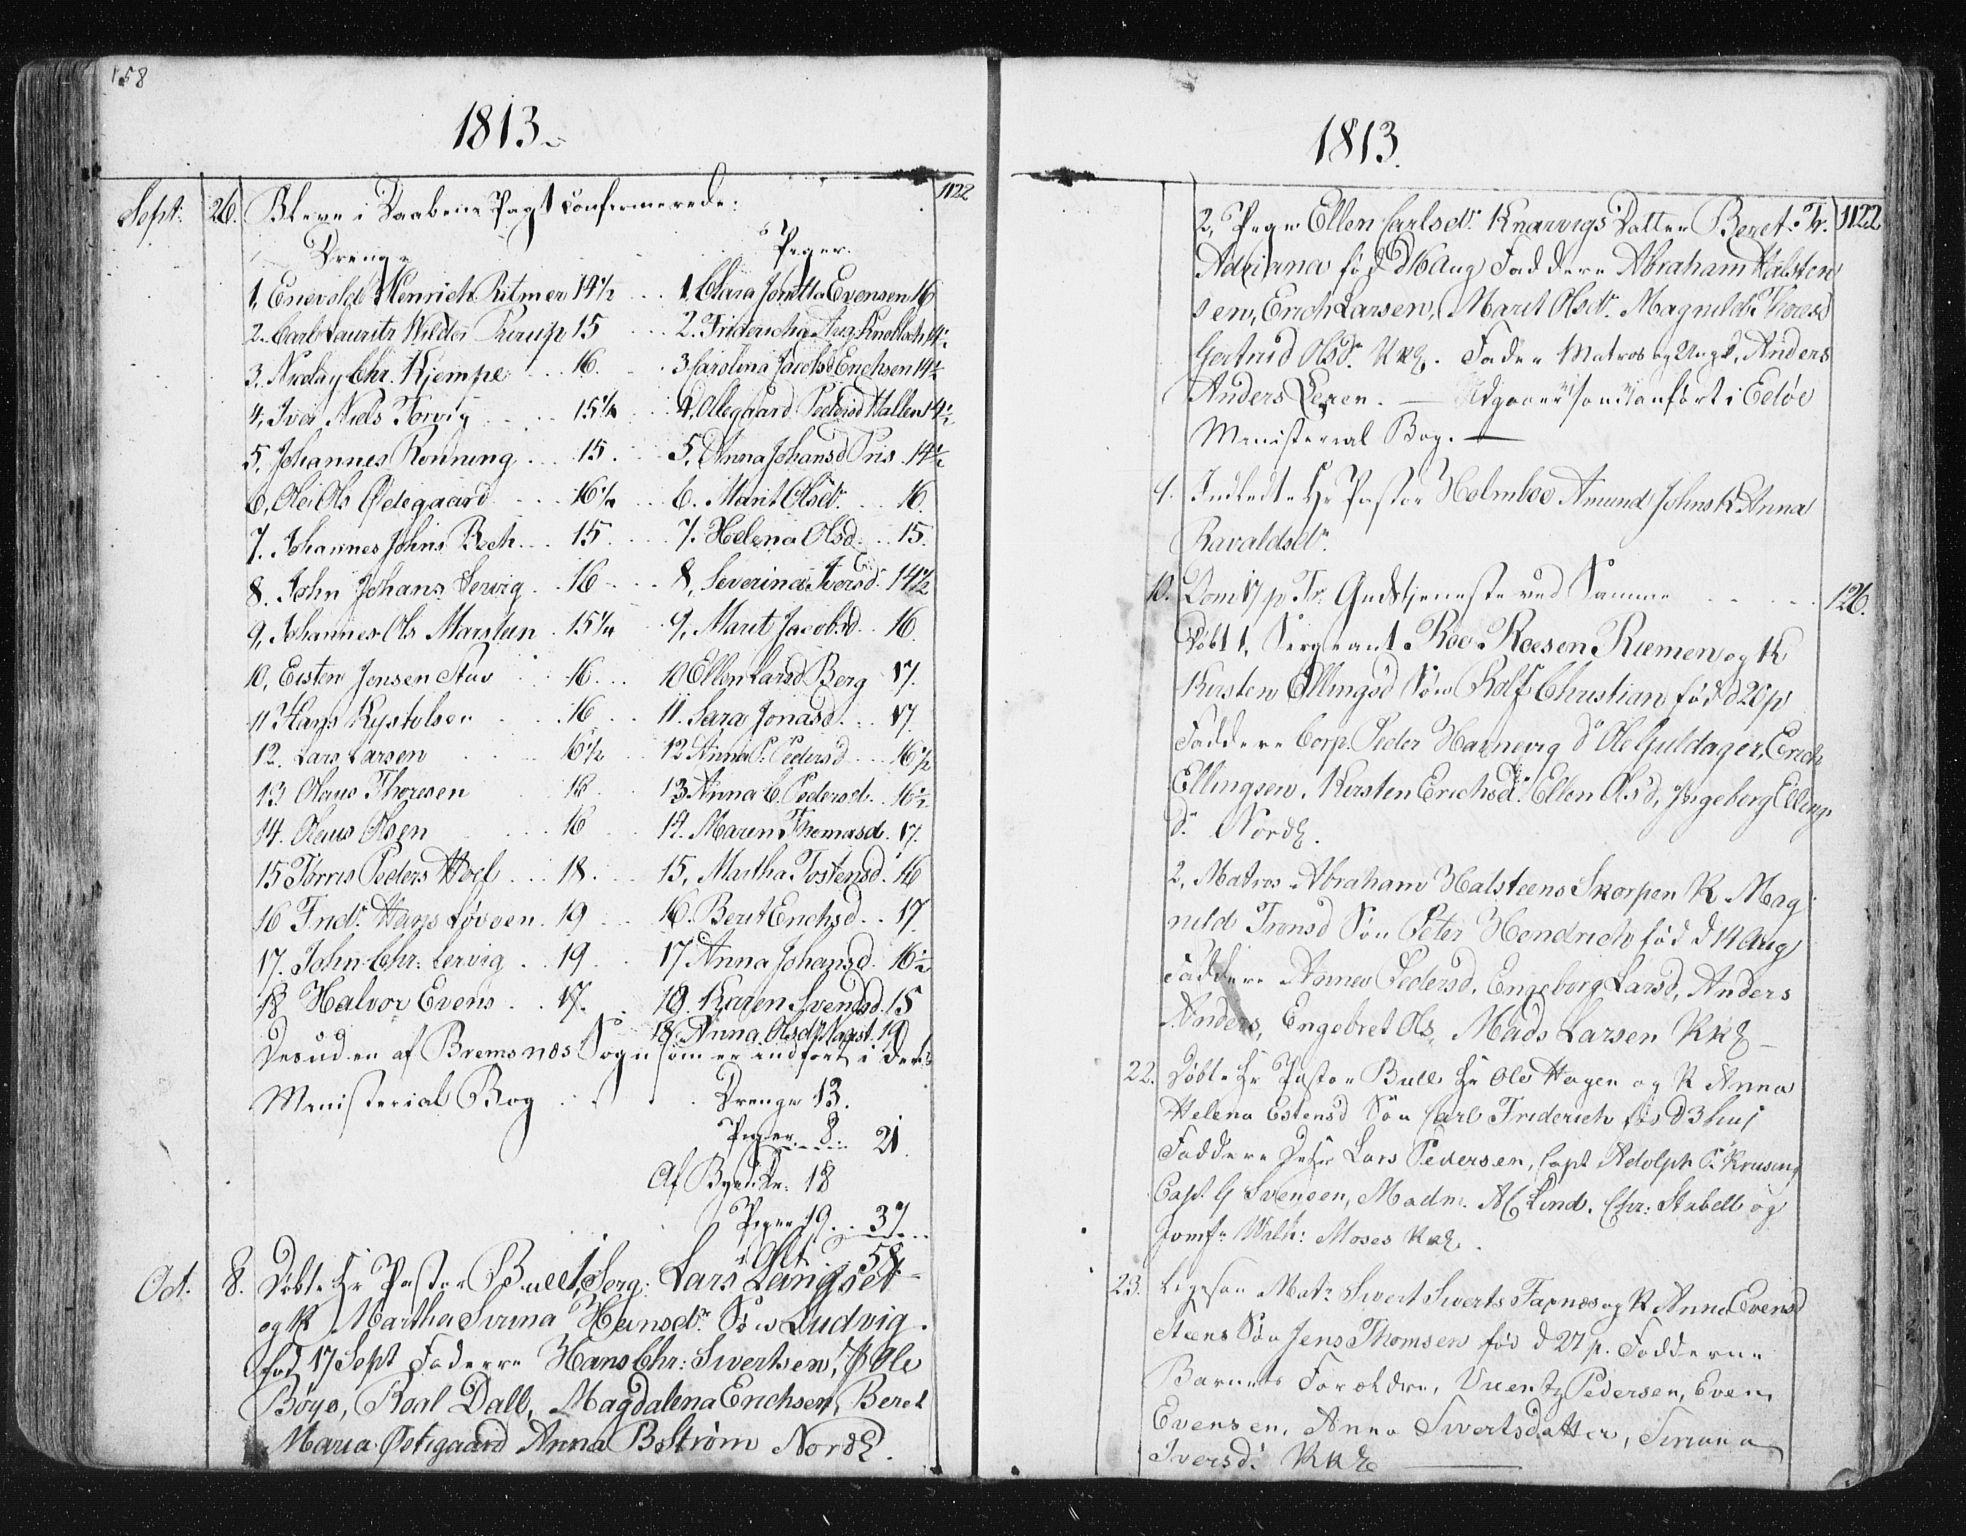 158
1813.
Sept. 26. Bleve i Daabens Pagt Confirmerede: 1122
Drenge Piger.
1, Enevold Henrich Ritmer 14 1/2 1, Clara Jonetta Evensen 16
2. Carl Lauritz Wilder 15 2. Fridericha Aug. Knobloch 14 1/2
3. Nicolay Chr. Kjempe 16. 3 Carolina Jacobsd Erichsen 14 1/2
4, Iver Niels Torvig 15 1/4 4, Ollegaard Pedersd Hallen 14 1/2
5, Johannes Ronning 15. 5, Anna Johansd Pris 14 1/2
6, Ole Ols Ødegaard 16 1/2 6. Marit Olsdr. 16.
7. Johannes Johns Bech 15 7. Helena Olsd. 15.
8. John Johans Lervig 16 8, Severina Iversd. 14 1/2
9, Johannes Ols Marsteen 15 1/4 9, Marit Jacobsd. 16.
10, Eisten Jensen Stav 16 10 Ellen Larsd Berg 17.
11 Hans Kystolsen 16 11. Sara Jonasd. 17.
12. Lars Larsen 16 1/2 12 Anna P. Pedersd 16 1/2
13 Olaus Thoresen 18 13 Anna C. Pedersd. 16 1/2
14. Olaus Olsen 16 14. Maren Thomasd. 17.
15 Torris Peders Hoel 18. 15, Martha Tostensd. 16
16 Fridr. Hans Løvoen 19 16. Berit Erichsd. 17
17. John Chr: Lervig 19 17 Anna Johansd. 16 1/2
18 Halvor Evens 17. 19. Karen Svendsd. 15
18. Anna Olsdr 19
Desuden af Bremsnes Sogn som er indført i dens
Ministerial Bog Drenge 13.
Piger 8. 21.
Af Byen Dr: 18
Piger 19. 37
i Alt 58
Oct. 8. Døbte Hr Pastor Bull 1, Serg: Lars Langset
og K Martha Sirina Hansdr. Søn Ludvig.
fød 17 Sept Faddere Hans Chr: Sivertsen, Ole
Bøye, Roal Dall, Magdalena Erichsen, Beret
Maria Østigaard Anna Bostrøm Nordl.
1813.
2, Pige Ellen Carlsdr. Knarvigs Datter Beret 1122
Adrianna fød d 16 Aug Faddere Abraham Halsten
sen, Erich Larsen, Marit Olsdr. Magnild Thoresd
Gertrud Olsdr. Fader Matros og Ungk. Anders
Anders Leren. — Udgaaer som anført i Edøe
Ministerial Bog. —
9. Indledte Hr Pastor Holmboe Amund Johns K Anna
Ravaldsdr.
10. Dom 17 p Tr: Gudstjeneste ved Samme 126.
Døbt 1, Sergeant Roe Roesen Riemen og K
Kirsten Ellingsd Søn Rolf Christian fød d 20 p
Faddere Corp. Peder Harnevig do Ole Guldager, Erich
Ellingsen. Kirsten Erichsd. Ellen Olsd, Ingeberg Elling
dr. Nordl.
2, Matros Abraham Halsteens Skorpen K Mag
nild Tronsd Søn Peter Hendrich fød d 12 Aug
Faddere Anne Pedersd. Engeborg Larsd, Anders
Anders, Engebret Ols, Mads Larsen
22. Døbte Hr Pastor Bull Hr Ole Hagen og K Anna
Helena Estensd Søn Carl Friderich fød d 3
Faddere Lars Pedersen, Capt Adolph P. Krusing
Capt G Svensen, Madm. Lind. Chr: Stabell og
Jomfr Moses
23. Ligesaa Matr Sivert Siverts Farnes og K Anne Evensd
Søn Jens Thomsen fød d 27 p. Fadderne
Barnets Forældre, Pedersen, Even
Evensen, Anne Sivertsdatter, Siriana
Iversd.